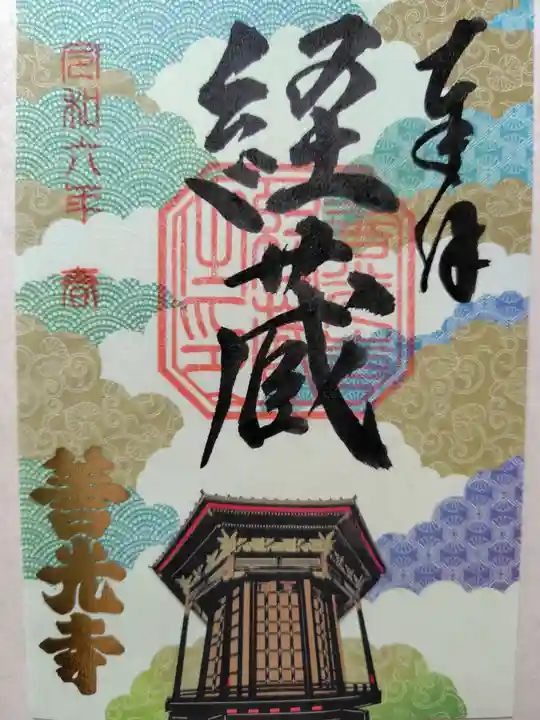 奉拝
経蔵
令和六年 春
善光寺